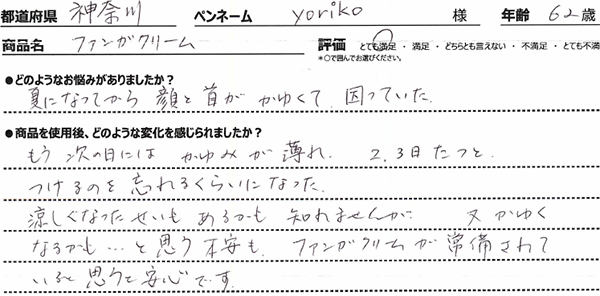 都道府県 神奈川 ペンネーム yoriko 様 年齢 62歳
商品名 ファンガクリーム 評価 とても満足・満足・どちらとも言えない・不満足・とても不満
*○で囲んでお選びください。
●どのようなお悩みがありましたか?
夏になってから 顔と首が かゆくて 困っていた.
●商品を使用後、どのような変化を感じられましたか?
もう 次の日には かゆみが 薄れ. 2.3日たつと.
つけるのを 忘れるくらいになった.
涼しくなったせいも あるかも 知れませんが 又かゆく
なるかも…と思う 不安も. ファンガクリームが 常備されて
いると 思うと 安心です.